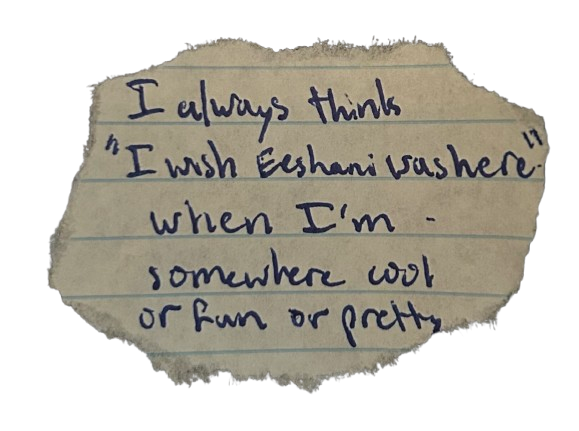 I always think
"I wish Eeshani was here."
when I'm -
somewhere cool
or fun or pretty